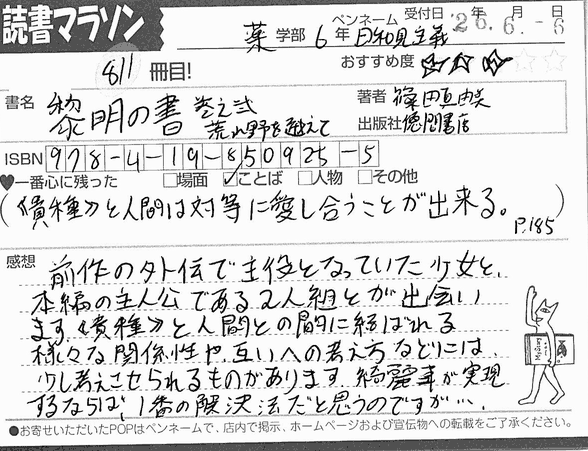 読書マラソン
薬 学部 6 年 ペンネーム 日和見主義 受付日 '26年 6月 -6日
811 冊目! おすすめ度 ★★★☆☆
書名 黎明の書 巻之弐 荒れ野を越えて
著者 篠田真由美
出版社 徳間書店
ISBN 978-4-19-850925-5
♥一番心に残った □場面 ☑ことば □人物 □その他
(《貴種》と人間は対等に愛し合うことが出来る。 P.185 )
感想 前作の外伝で主役となっていた少女と、
本編の主人公である2人組とが出会い
ます。《貴種》と人間との間に結ばれる
様々な関係性や、互いへの考え方などには
少し考えさせられるものがあります。綺麗事が実現
するならば、1番の解決法だと思うのですが…。
●お寄せいただいたPOPはペンネームで、店内で掲示、ホームページおよび宣伝物への転載をご了承ください。